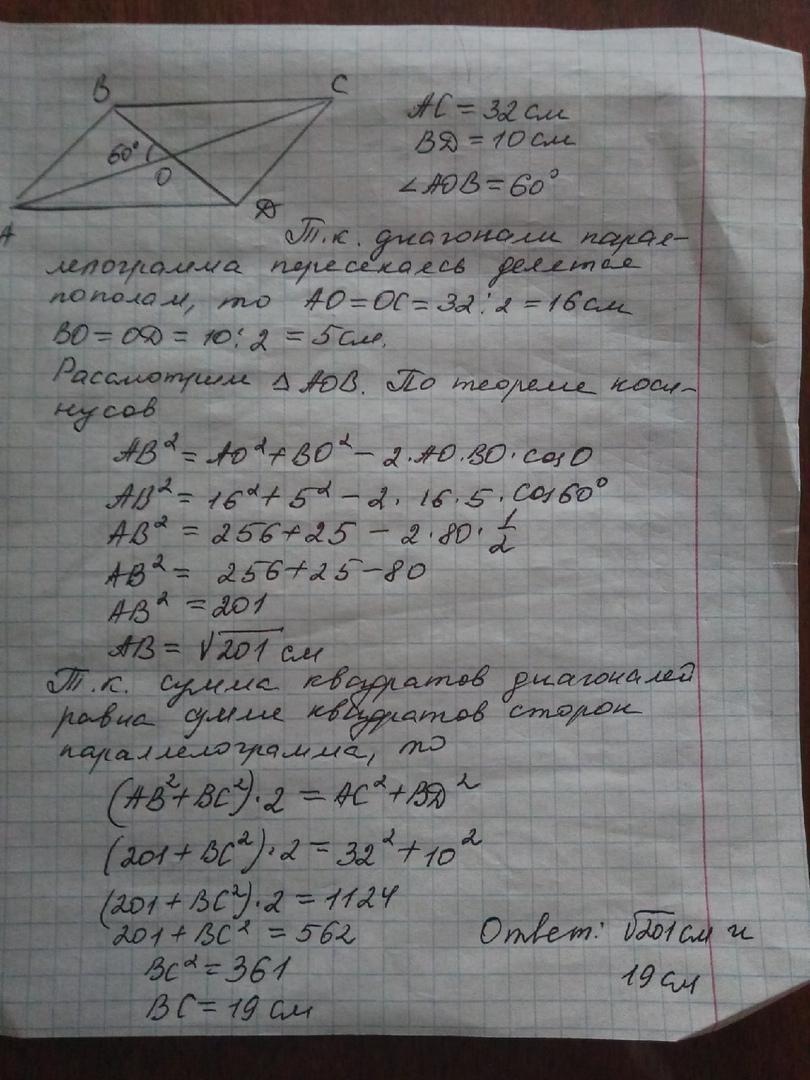 B C
60°
O
A D
AC = 32 см
BD = 10 см
∠AOB = 60°
Т.к. диагонали парал-
лелограмма пересекаясь делятся
пополам, то AO = OC = 32 : 2 = 16 см
BO = OD = 10 : 2 = 5 см.
Рассмотрим △ AOB. По теореме коси-
нусов
AB² = AO² + BO² - 2 · AO · BO · cos O
AB² = 16² + 5² - 2 · 16 · 5 · cos 60°
AB² = 256 + 25 - 2 · 80 · 1/2
AB² = 256 + 25 - 80
AB² = 201
AB = √201 см
Т.к. сумма квадратов диагоналей
равна сумме квадратов сторон
параллелограмма, то
(AB² + BC²) · 2 = AC² + BD²
(201 + BC²) · 2 = 32² + 10²
(201 + BC²) · 2 = 1124
201 + BC² = 562
BC² = 361
BC = 19 см
Ответ: √201 см и
19 см